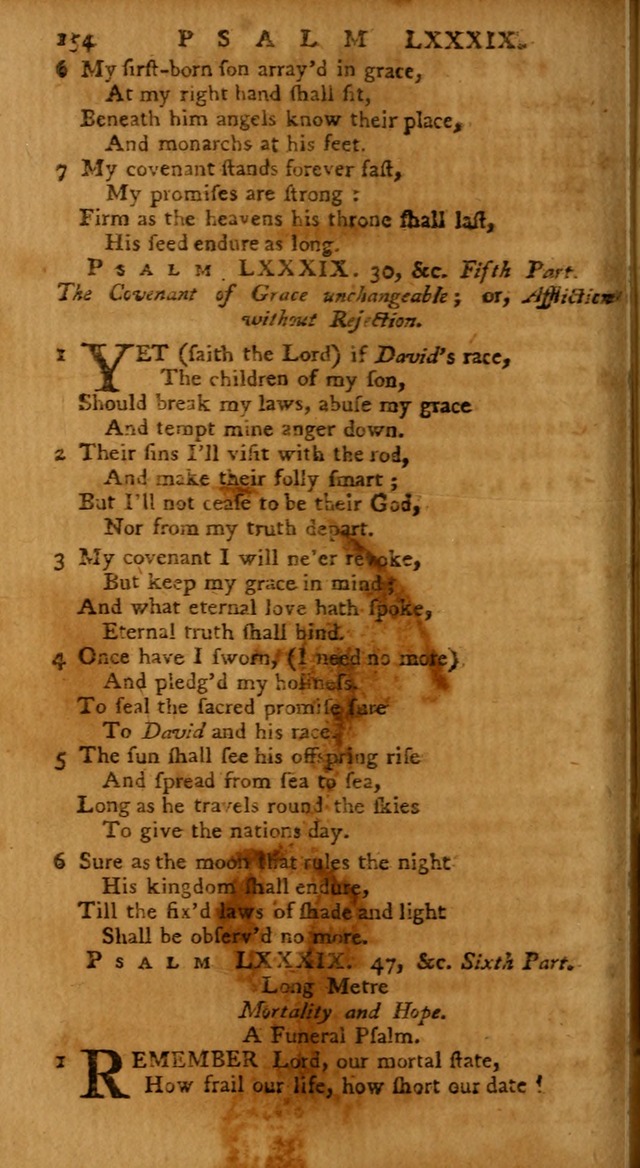 154 PSALM LXXXIX.
6 My firſt-born ſon array'd in grace,
At my right hand ſhall ſit,
Beneath him angels know their place,
And monarchs at his feet.
7 My covenant ſtands forever faſt,
My promiſes are ſtrong :
Firm as the heavens his throne ſhall laſt,
His ſeed endure as long.
PSALM LXXXIX. 30, &c. Fifth Part.
The Covenant of Grace unchangeable; or, Affliction
without Rejection.
1 YET (ſaith the Lord) if David's race,
The children of my ſon,
Should break my laws, abuſe my grace
And tempt mine anger down.
2 Their ſins I'll viſit with the rod,
And make their folly ſmart ;
But I'll not ceaſe to be their God,
Nor from my truth depart.
3 My covenant I will ne'er revoke,
But keep my grace in mind ;
And what eternal love hath ſpoke,
Eternal truth ſhall bind.
4 Once have I ſworn, (I need no more)
And pledg'd my holineſs.
To ſeal the ſacred promiſe ſure
To David and his race.
5 The ſun ſhall ſee his offspring riſe
And ſpread from ſea to ſea,
Long as he travels round the ſkies
To give the nations day.
6 Sure as the moon that rules the night
His kingdom ſhall endure,
Till the fix'd laws of ſhade and light
Shall be obſerv'd no more.
PSALM LXXXIX. 47, &c. Sixth Part.
Long Metre
Mortality and Hope.
A Funeral Pſalm.
1 REMEMBER Lord, our mortal ſtate,
How frail our life, how ſhort our date !